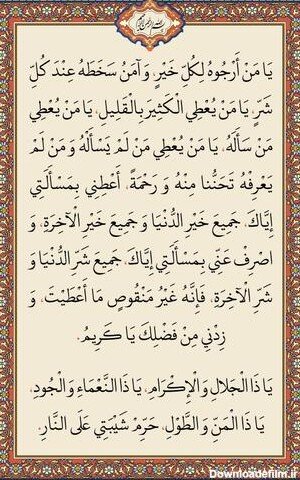 بسم الله الرحمن الرحیم
يَا مَنْ أَرْجُوهُ لِكُلِّ خَيْرٍ، وَ آمَنُ سَخَطَهُ عِنْدَ كُلِّ
شَرٍّ، يَا مَنْ يُعْطِي الْكَثِيرَ بِالْقَلِيلِ، يَا مَنْ يُعْطِي
مَنْ سَأَلَهُ، يَا مَنْ يُعْطِي مَنْ لَمْ يَسْأَلْهُ وَ مَنْ لَمْ
يَعْرِفْهُ تَحَنُّنًا مِنْهُ وَ رَحْمَةً، أَعْطِنِي بِمَسْأَلَتِي
إِيَّاكَ، جَمِيعَ خَيْرِ الدُّنْيَا وَ جَمِيعَ خَيْرِ الْآخِرَةِ، وَ
اصْرِفْ عَنِّي بِمَسْأَلَتِي إِيَّاكَ، جَمِيعَ شَرِّ الدُّنْيَا وَ
شَرِّ الْآخِرَةِ، فَإِنَّهُ غَيْرُ مَنْقُوصٍ مَا أَعْطَيْتَ، وَ
زِدْنِي مِنْ فَضْلِكَ يَا كَرِيمُ.
يَا ذَا الْجَلَالِ وَ الْإِكْرَامِ، يَا ذَا النَّعْمَاءِ وَ الْجُودِ،
يَا ذَا الْمَنِّ وَ الطَّوْلِ، حَرِّمْ شَيْبَتِي عَلَى النَّارِ.
Downloadefilm.ir